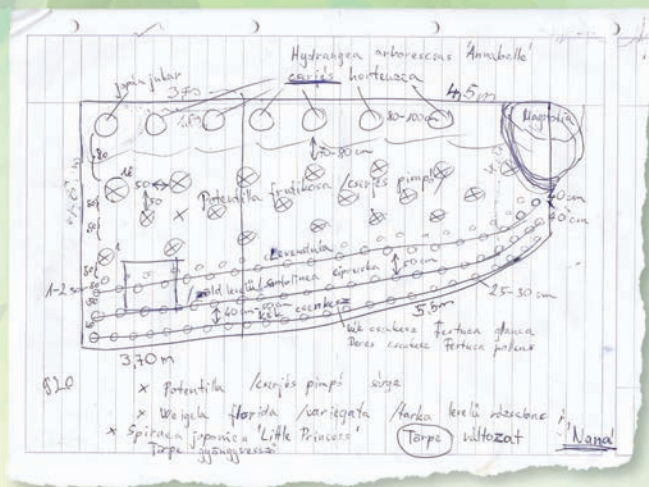 Hydrangea arborescens 'Annabelle'
japán juhar
cserjés hortenzia
3,70
4,5 m
Magnolia
80-100 cm
70-80 cm
50
Potentilla frutikosa /cserjés pimpó
50
40 cm
40
Levendula
50 cm
1-2
zöld levelű santolinea cipruska
40 cm-50 cm
kék csenkesz
5,5 m
25-30 cm
kék csenkesz Festuca glauca
Deres csenkesz Festuca pallens
3,70 m
920
x Potentilla /cserjés pimpó sárga
x Weigela florida /variegata /tarka levelű rózsalonc
x Spiraea japonica 'Little Princess'
Törpe gyöngyvessző
Törpe változat
'Nana'